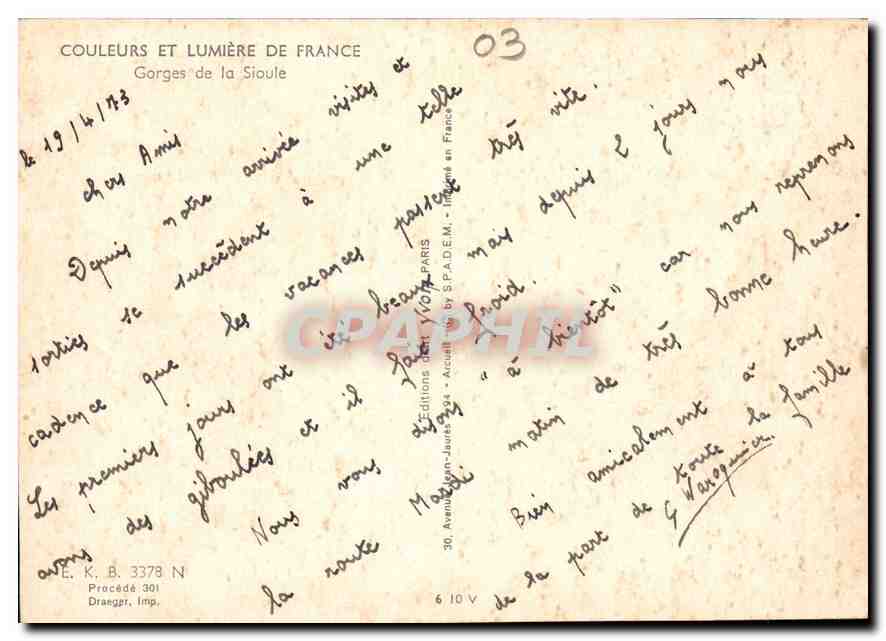 COULEURS ET LUMIÈRE DE FRANCE
Gorges de la Sioule
03
le 19/4/73
chers Amis
Depuis notre arrivée visites et
sorties se succèdent à une telle
cadence que les vacances passent très vite.
Les premiers jours ont été beaux mais depuis 2 jours nous
avons des giboulées et il fait froid.
Nous vous disons "à bientôt" car nous reprenons
la route Mardi matin de très bonne heure.
Bien amicalement à tous
de la part de toute la famille
G Waroquier
Editions d'art YVON, PARIS
30, Avenue Jean-Jaurès, 94 - Arcueil by S.P.A.D.E.M. - Imprimé en France
E. K. B. 3378 N
Procédé 301
Draeger, Imp.
6 10 V
CPAPHIL